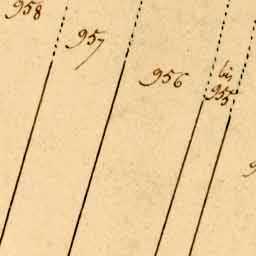 958
957
956
bis
955